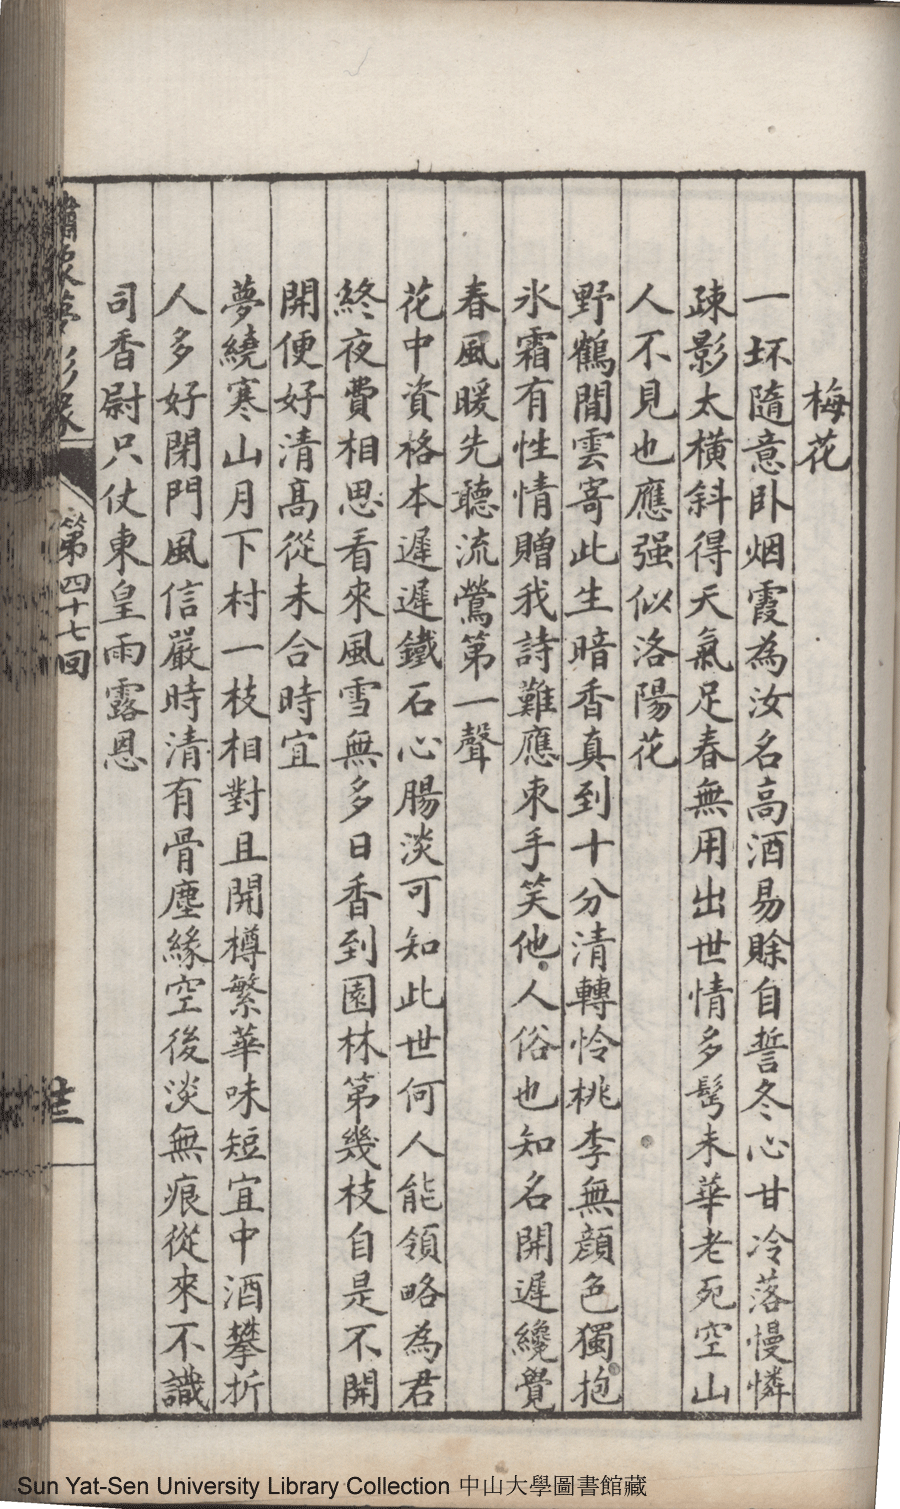 梅花
一坏隨意卧烟霞為汝名高酒易賖自誓冬心甘冷落慢憐
疎影太橫斜得天氣足春無用出世情多髩未華老死空山
人不見也應强似洛陽花
野鶴閒雲寄此生暗香真到十分清轉怜桃李無顏色獨抱
氷霜有性情贈我詩難應束手笑他人俗也知名開遲纔覺
春風暖先聽流鶯第一聲
花中資格本遲遲鐵石心腸淡可知此世何人能領略為君
終夜費相思看來風雪無多日香到園林第幾枝自是不開
開便好清髙從未合時宜
夢繞寒山月下村一枝相對且開樽繁華味短宜中酒攀折
人多好閉門風信嚴時清有骨塵緣空後淡無痕從來不識
司香尉只仗東皇雨露恩
繪像夢影緣
第四十七回
Sun Yat-Sen University Library Collection 中山大學圖書館藏